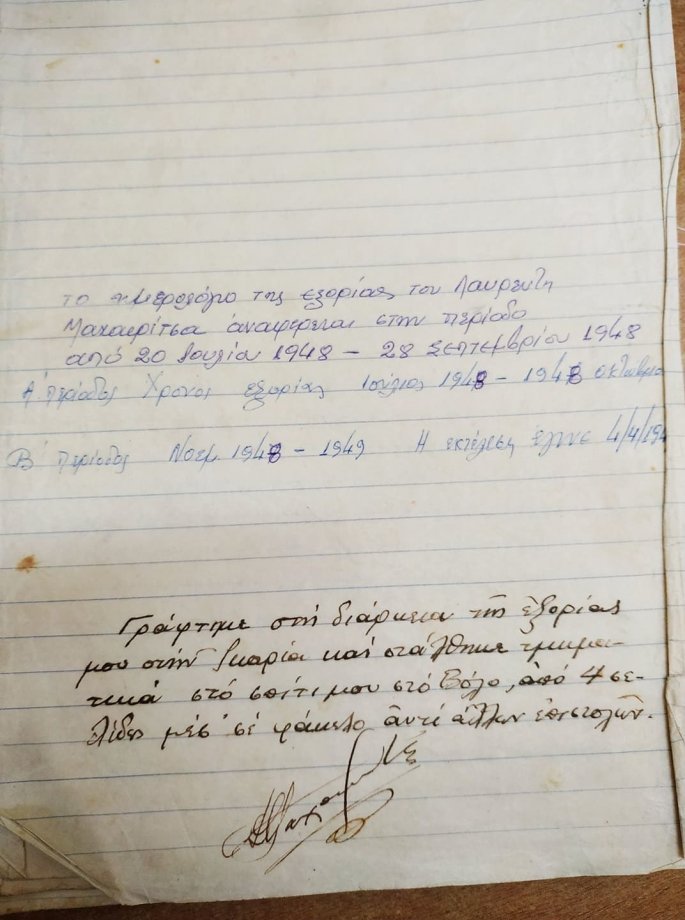 το ημερολόγιο της εξορίας του Λαυρέντη
Μαχαιρίτσα αναφέρεται στην περίοδο
από 20 Ιουλίου 1948 – 28 Σεπτεμβρίου 1948
Α' περίοδος Χρόνοι εξορίας Ιούλιος 1948 – 1948 Οκτώβριο
Β' περίοδος Νοεμ. 1948 – 1949 Η εκτέλεση έγινε 4/4/194
Γράφτηκε στή διάρκεια τῆς ἐξορίας
μου στήν Ικαρία καί στάλθηκε τμημα-
τικά στό σπίτι μου στό Βόλο, ἀπό 4 σε-
λίδες μές' σέ φάκελο ἀντί ἄλλων ἐπιστολῶν.